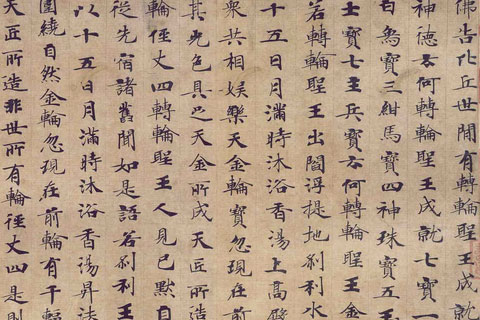 佛告比丘世間有轉輪聖王成就
神德云何轉輪聖王成就七寶一
白象寶三紺馬寶四神珠寶五玉
士寶七主兵寶云何轉輪聖王金
若轉輪聖王出閻浮提地剎利水
十五日月滿時沐浴香湯上高殿
衆共相娛樂天金輪寶忽現在前
其光色具足天金所成天匠所造
輪徑丈四轉輪聖王人見已默自
從先宿諸舊聞如是語若剎利王
以十五日月滿時沐浴香湯昇法
圍繞自然金輪忽現在前輪有千輻
天匠所造非世所有輪徑丈四是則